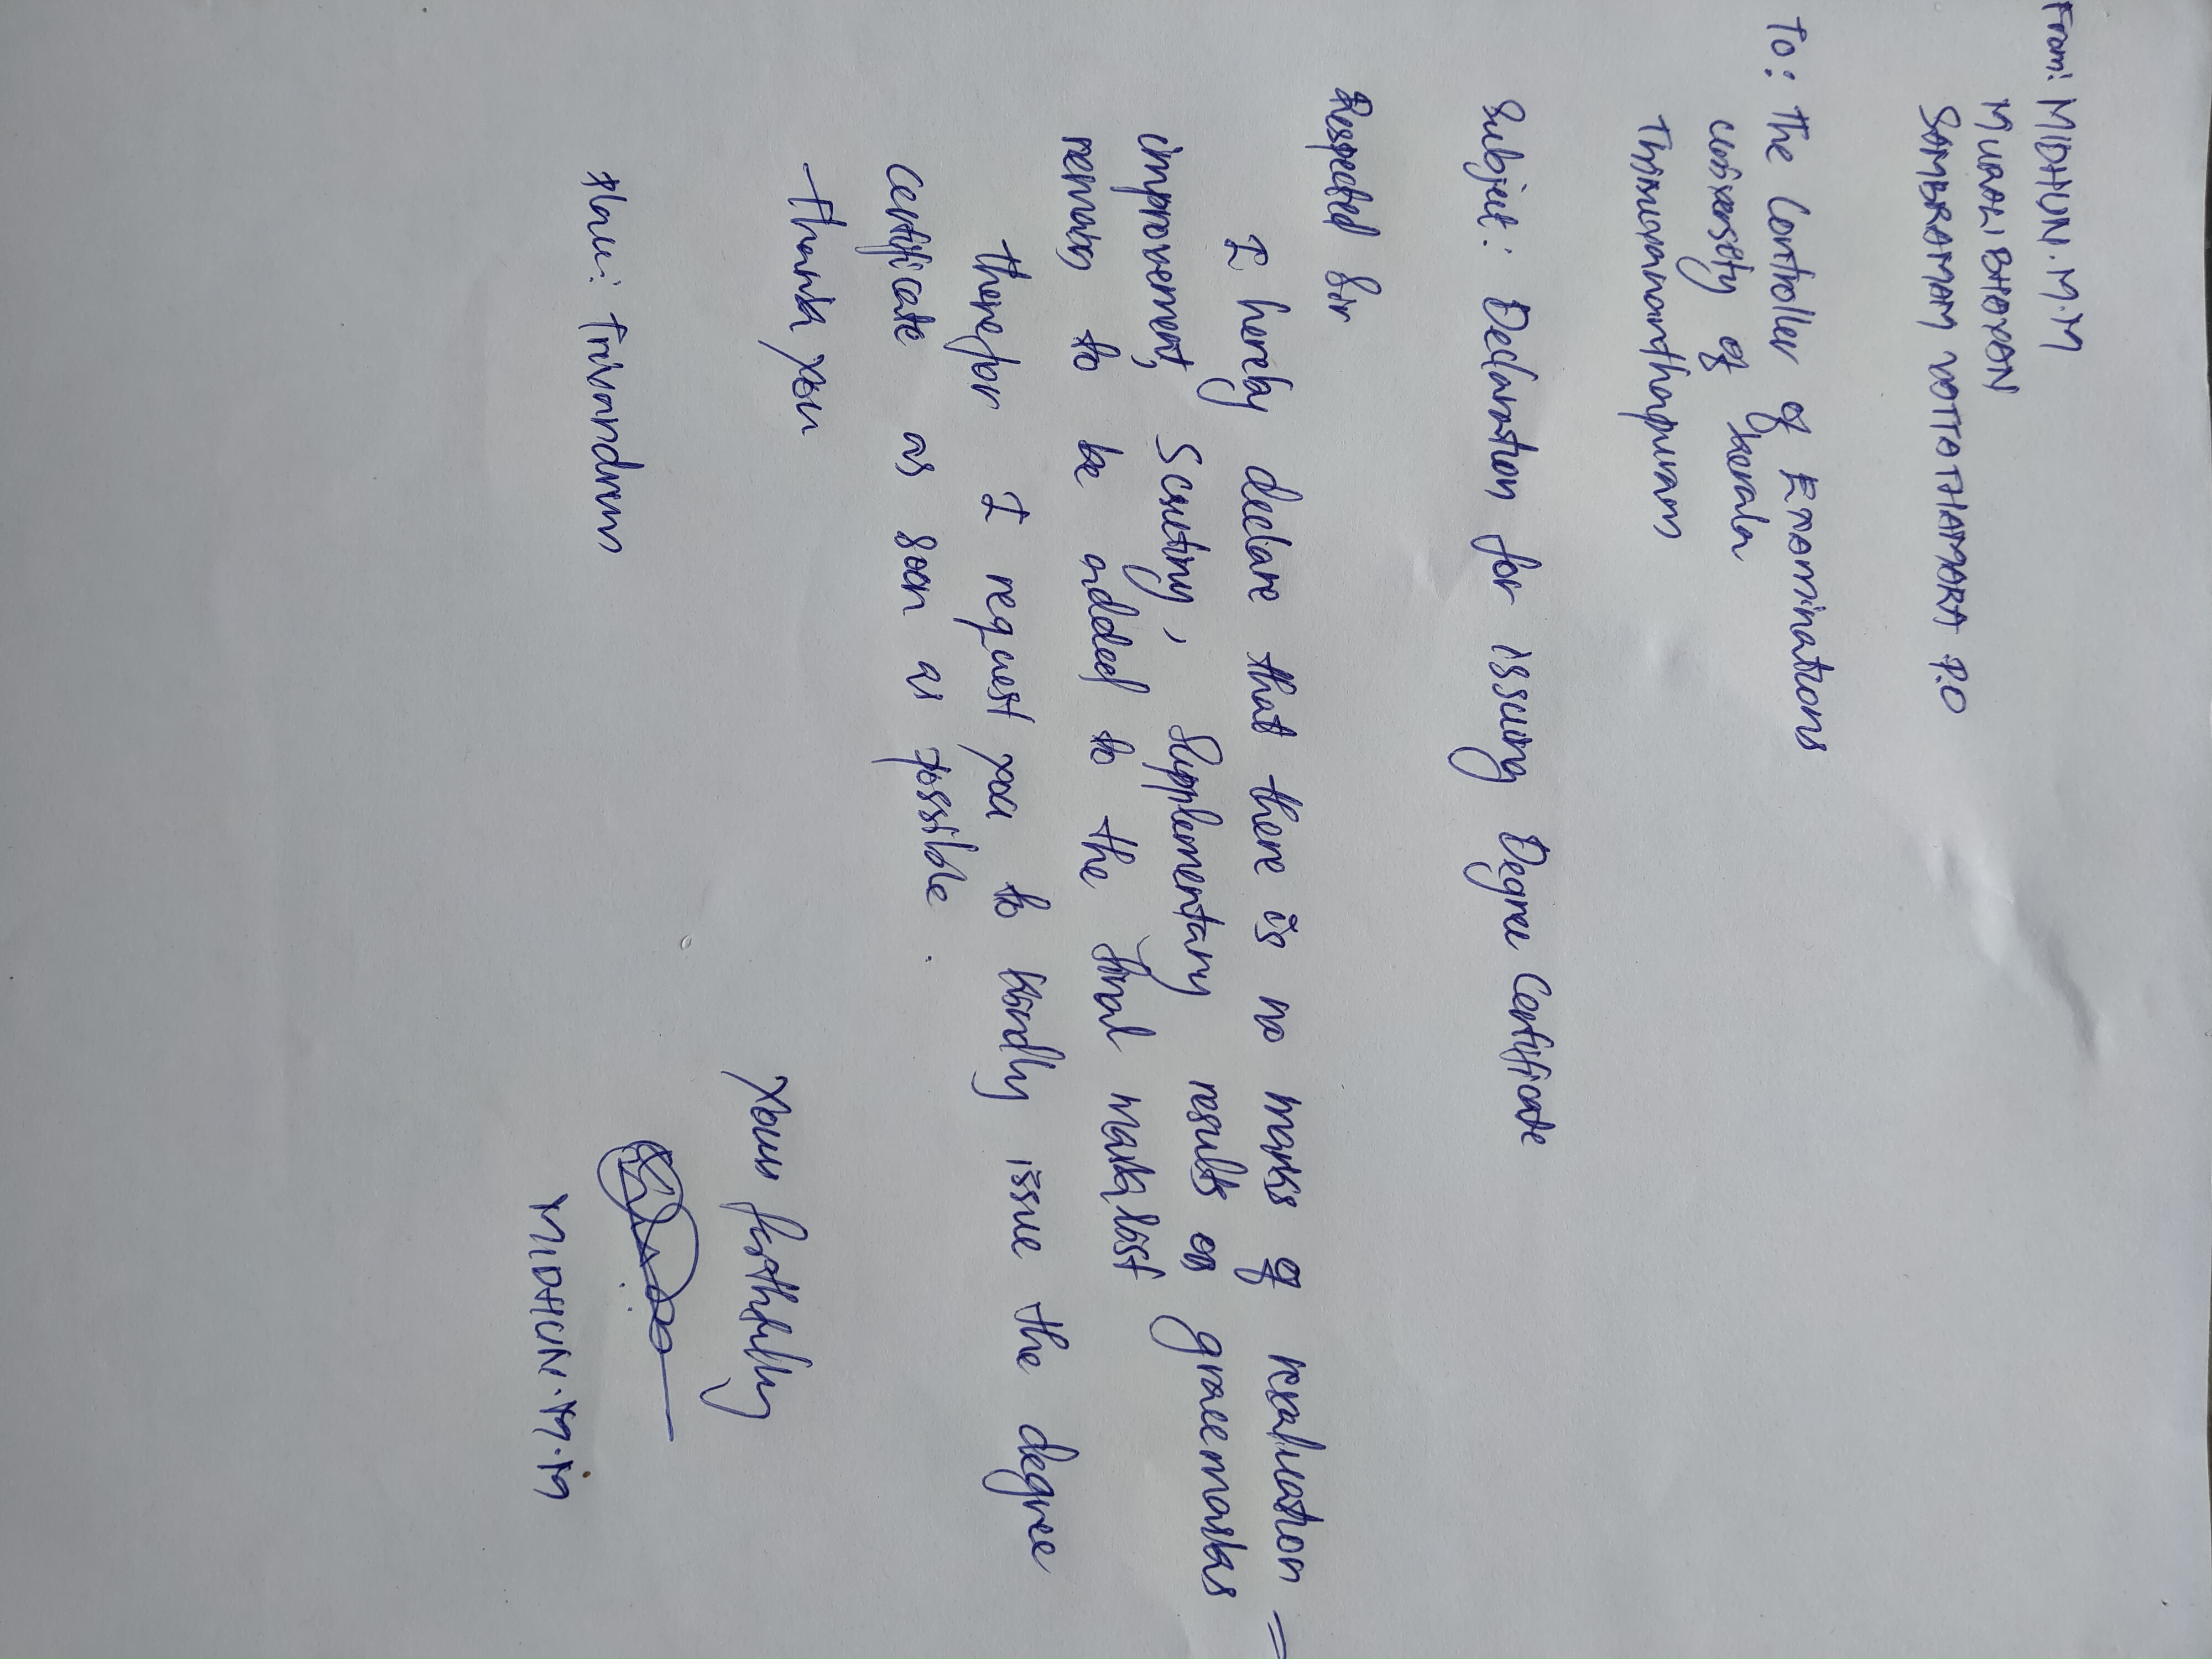 From: MIDHUN.M.M
MURALI BHAVAN
SAMBRAMAM VATTATHAMARA P.O
To: The Controller of Examinations
University of Kerala
Thiruvananthapuram
Subject: Declaration for issuing Degree Certificate
Respected Sir
I hereby declare that there is no marks of revaluation =
improvement, Scrutiny, Supplementary results or gracemarks
remain to be added to the final marklist
therefor I request you to kindly issue the degree
certificate as soon as possible.
thank you
Yours faithfully
Place: Trivandrum
MIDHUN.M.M